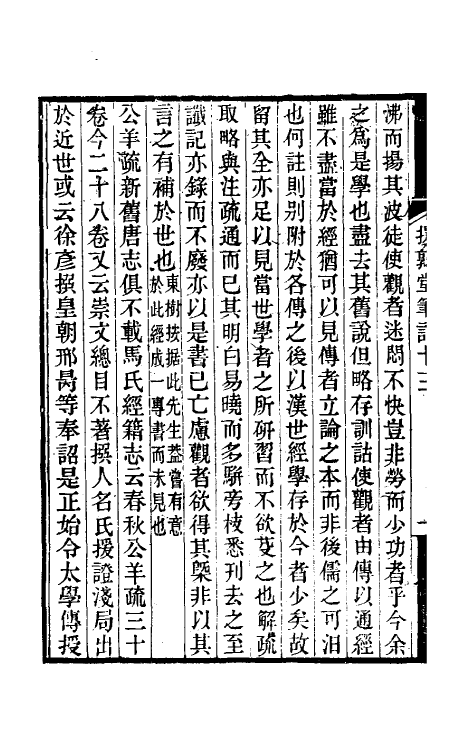 援鶉堂筆記十三
沸而揚其波徒使觀者迷悶不快豈非勞而少功者乎今余
之爲是學也盡去其舊說但略存訓詁使觀者由傳以通經
雖不盡當於經猶可以見傳者立論之本而非後儒之可汨
也何註則别附於各傳之後以漢世經學存於今者少矣故
留其全亦足以見當世學者之所硏習而不欲芟之也解疏
取略與注疏通而已其明白易曉而多騈旁枝悉刊去之至
讖記亦錄而不廢亦以是書已亡慮觀者欲得其槩非以其
言之有補於世也東樹按据此先生葢嘗有意
於此經成一專書而未見也
公羊疏新舊唐志俱不載馬氏經籍志云春秋公羊疏三十
卷今二十八卷又云崇文總目不著撰人名氏援證淺局出
於近世或云徐彥撰皇朝邢昺等奉詔是正始令太學傳授